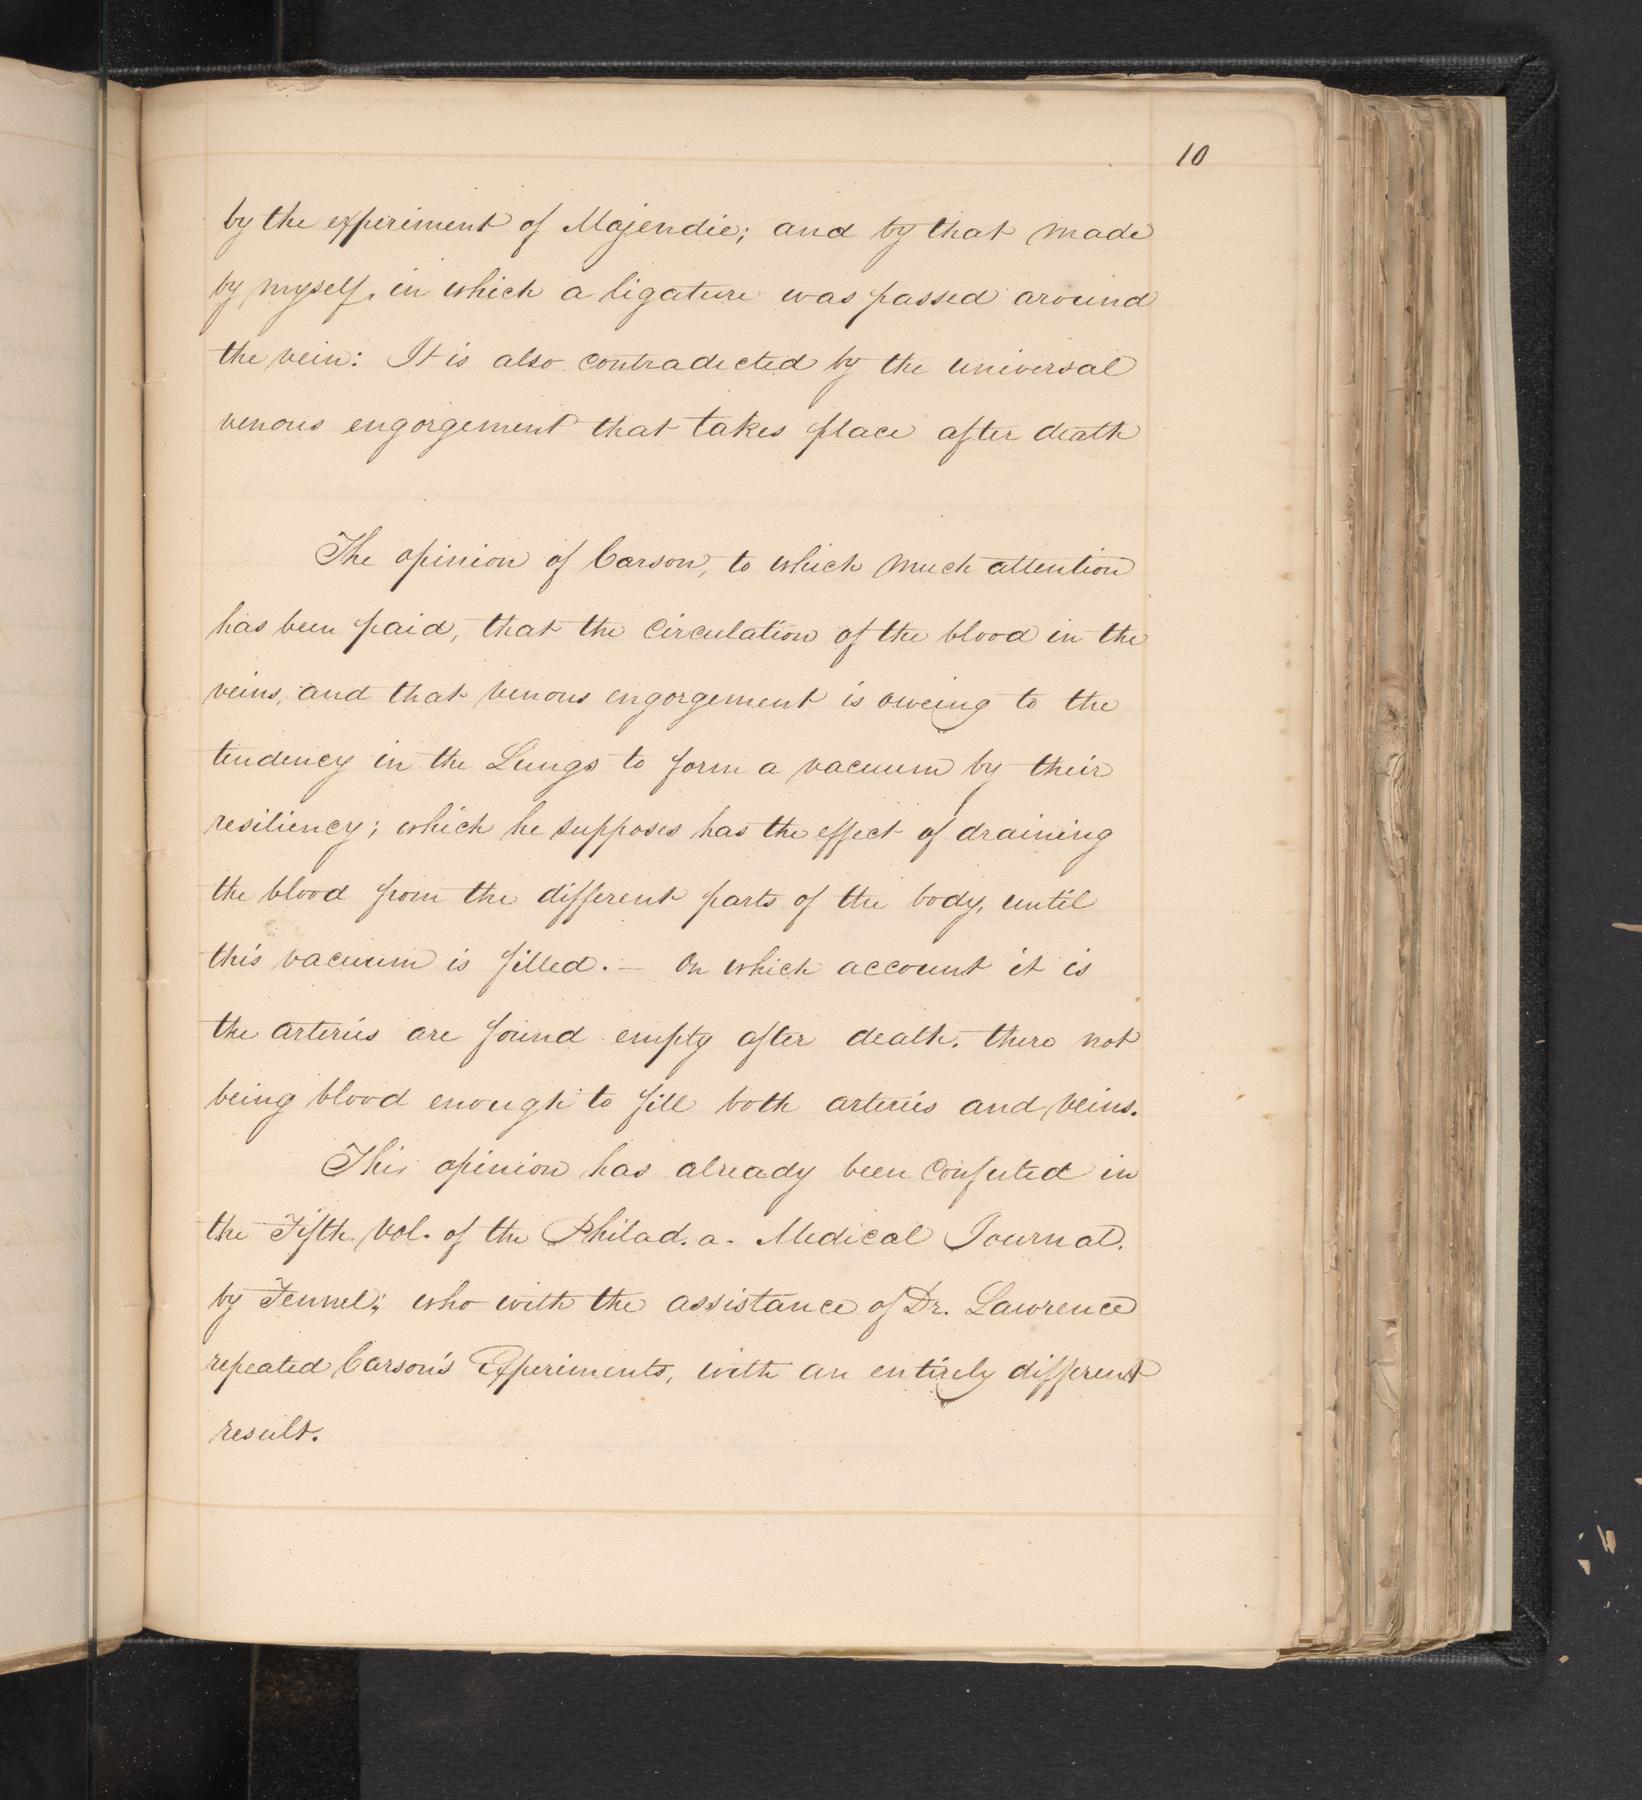 10
by the experiment of Majendie; and by that made
by myself, in which a ligature was passed around
the vein: It is also contradicted by the universal
venous engorgement that takes place after death
The opinion of Carson, to which much attention
has been paid, that the circulation of the blood in the
veins, and that venous engorgement is oweing to the
tendency in the Lungs to form a vacuum by their
resiliency; which he supposes has the effect of draining
the blood from the different parts of the body, until
this vacuum is filled. — On which account it is
the arteries are found empty after death. there not
being blood enough to fill both arteries and veins.
This opinion has already been confuted in
the Fifth. Vol. of the Philad. a. Medical Journal.
by Fennel; who with the assistance of Dr. Lawrence
repeated Carson's Experiments, with an entirely different
result.